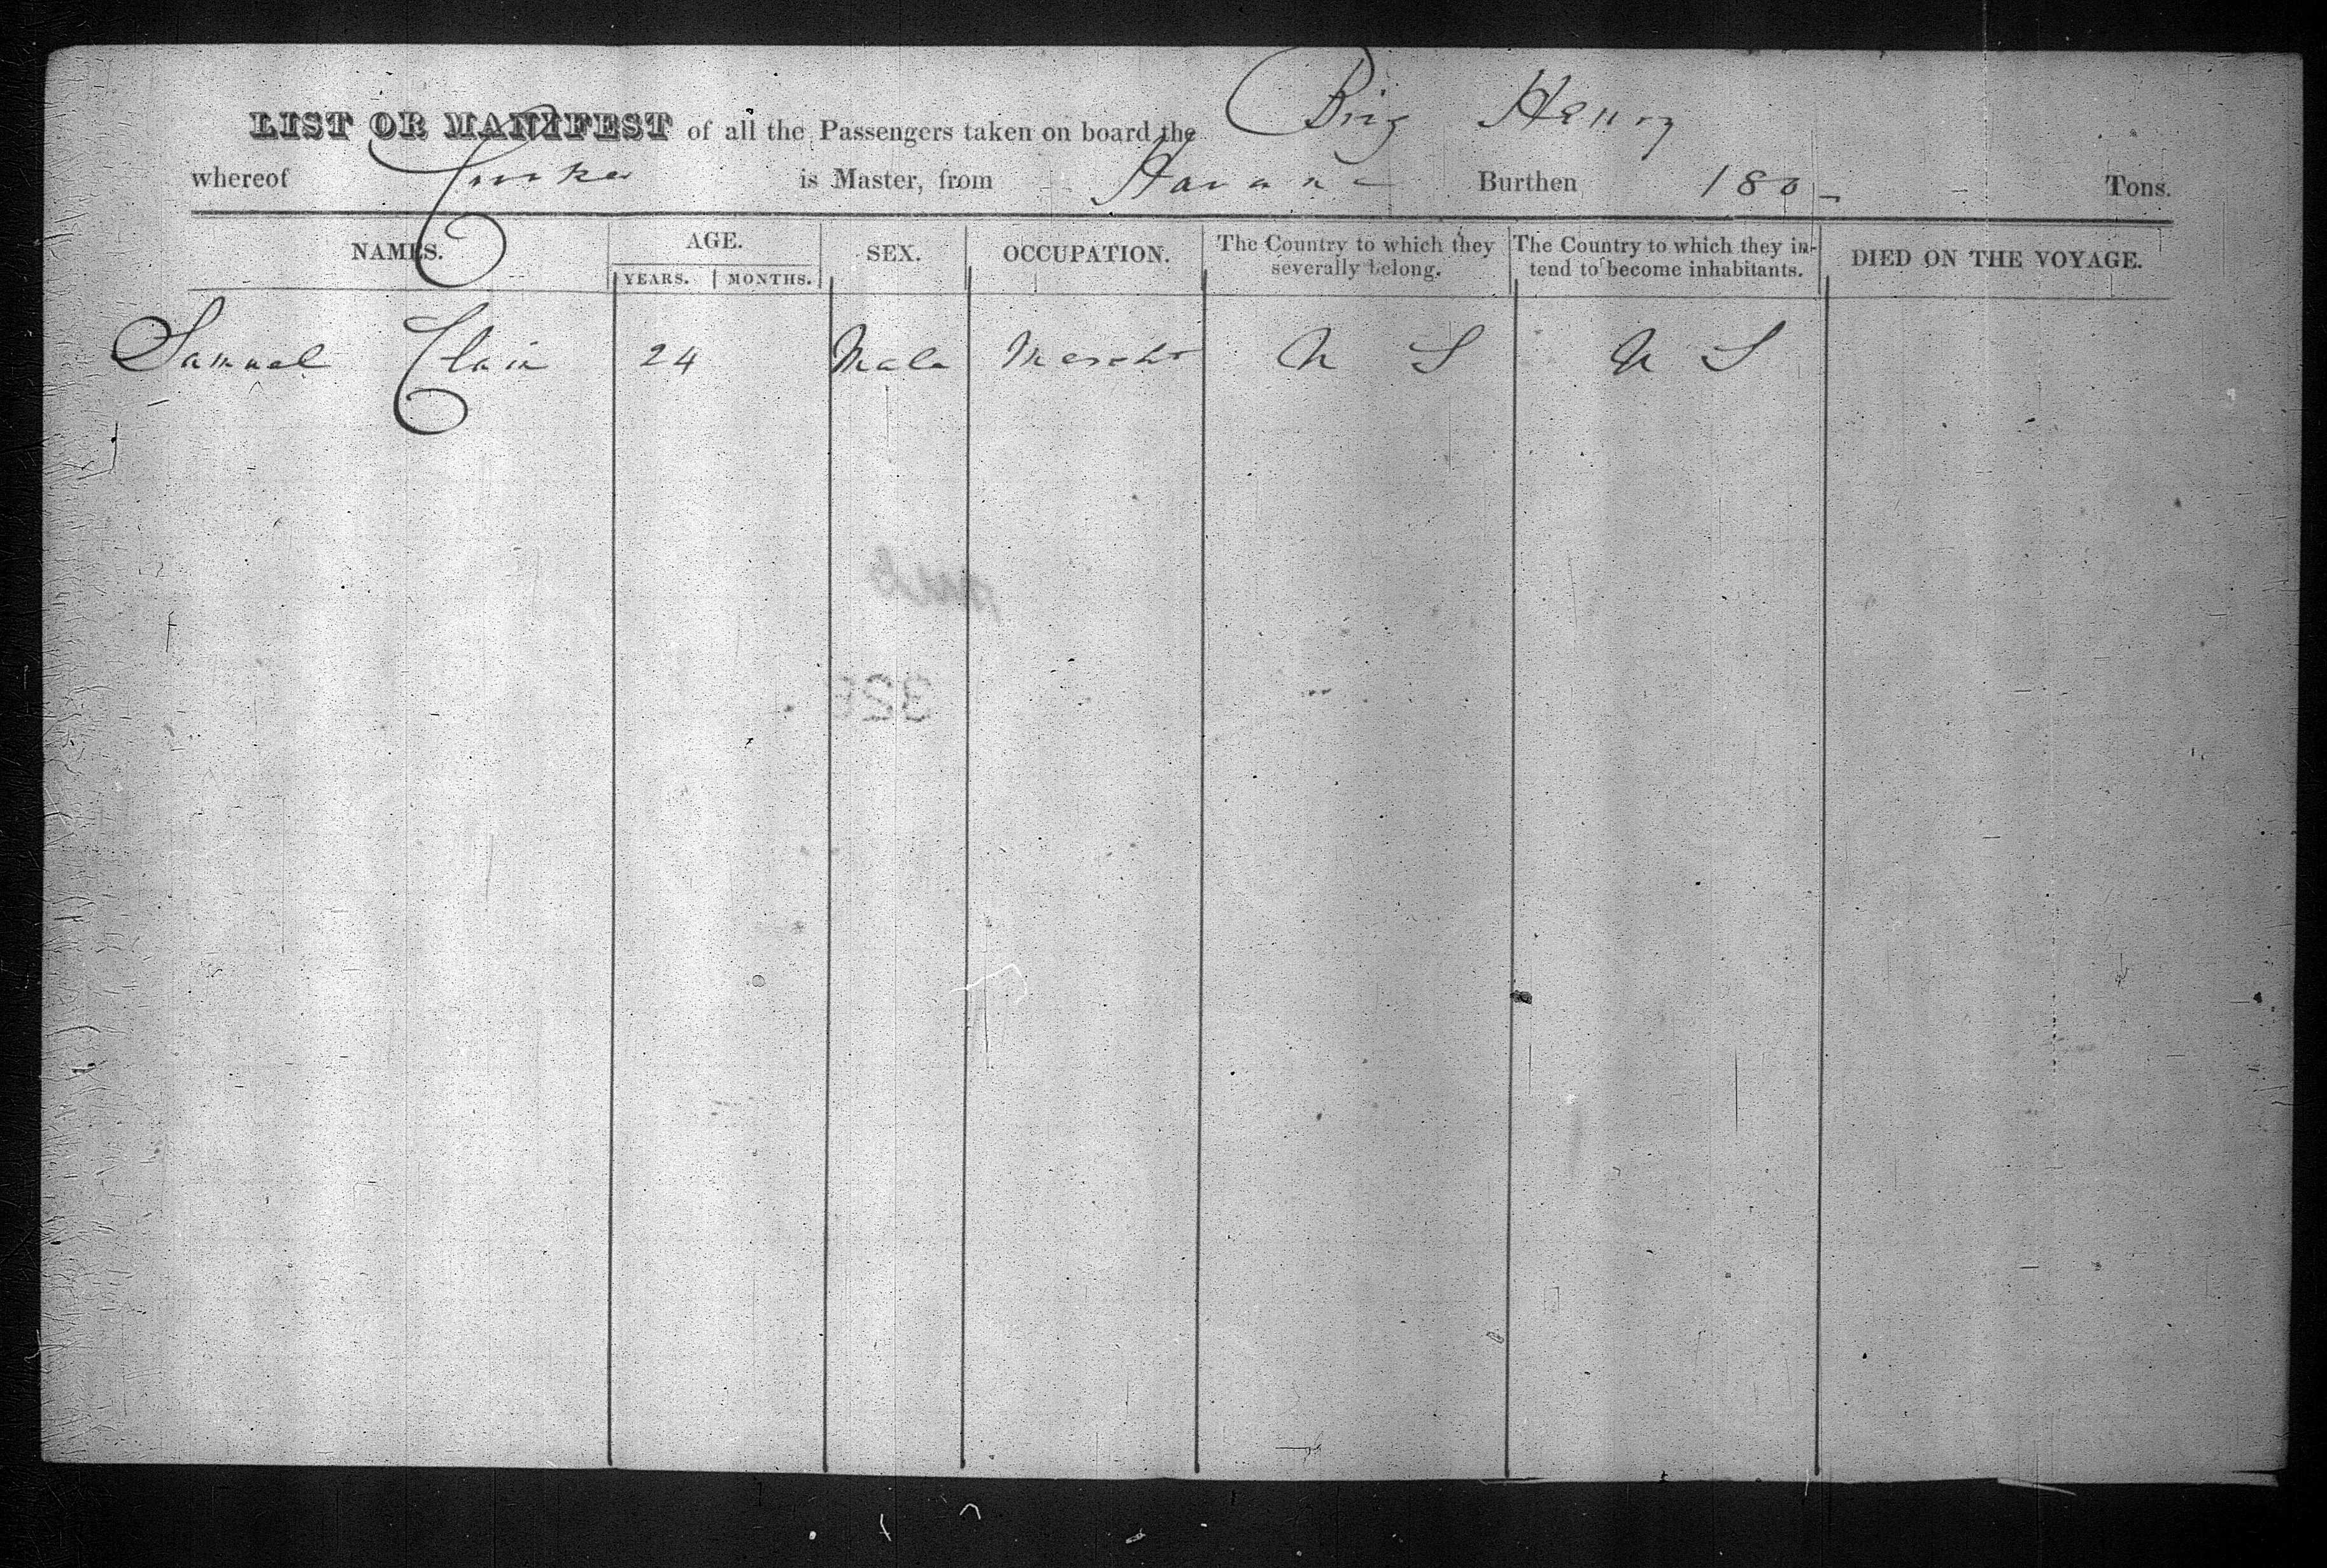 LIST OR MANIFEST of all the Passengers taken on board the Brig Henry
whereof is Master, from Havana Burthen 180 Tons.
NAMES. AGE. SEX. OCCUPATION. The Country to which they severally belong. The Country to which they intend to become inhabitants. DIED ON THE VOYAGE.
YEARS. MONTHS.
Samuel 24 Male Mercht U S U S